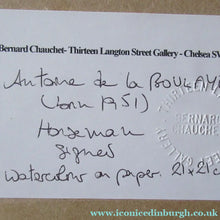 Bernard Chauchet- Thirteen Langton Street Gallery - Chelsea SW
Antoine de la BOULAYE
(born 1951)
Horseman
signed
watercolour on paper. 21x21c
THIRTEEN
BERNARD
CHAUCHET
GALLERY
www.iconicedinburgh.co.uk